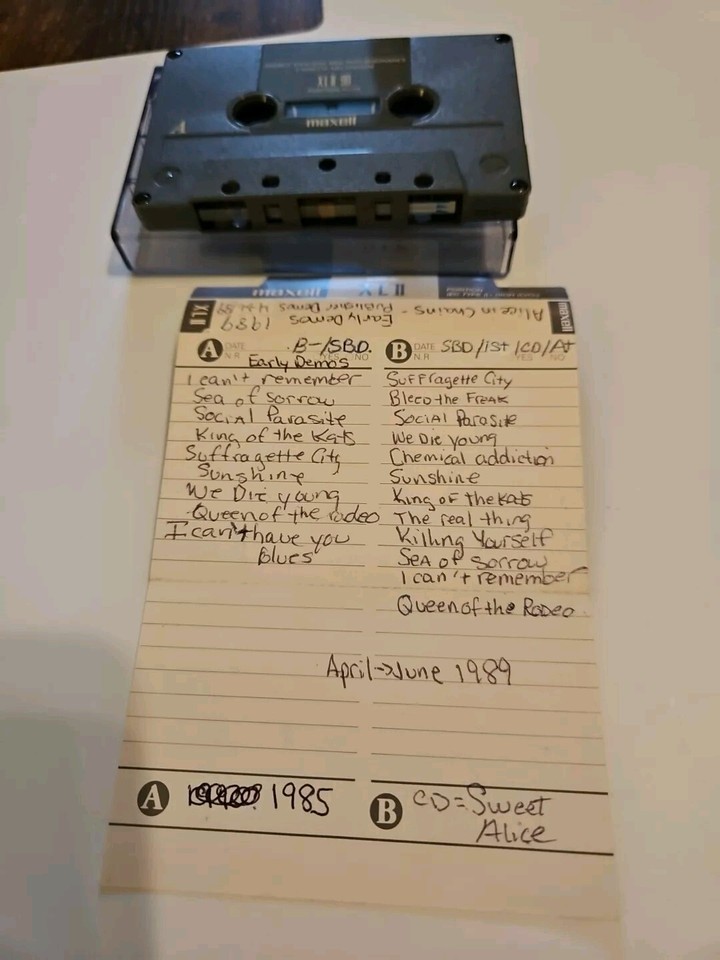 XL II 90
maxell
A
maxell XL II
maxell
XLII
Alice in Chains - Early Demos 1989
Publisher Demos 4-24-89
A DATE B-/SBD.
N.R YES NO
Early Demos
I can't remember
Sea of Sorrow
Social Parasite
King of the Kats
Suffragette City
Sunshine
We Die young
Queen of the rodeo
I can't have you
blues
B DATE SBD/1st/CD/At
N.R YES NO
Suffragette City
Bleed the Freak
Social Parasite
We Die young
Chemical addiction
Sunshine
King of the Kats
The real thing
Killing Yourself
Sea of sorrow
I can't remember
Queen of the Rodeo
April→June 1989
A 1985
B CD=Sweet
Alice